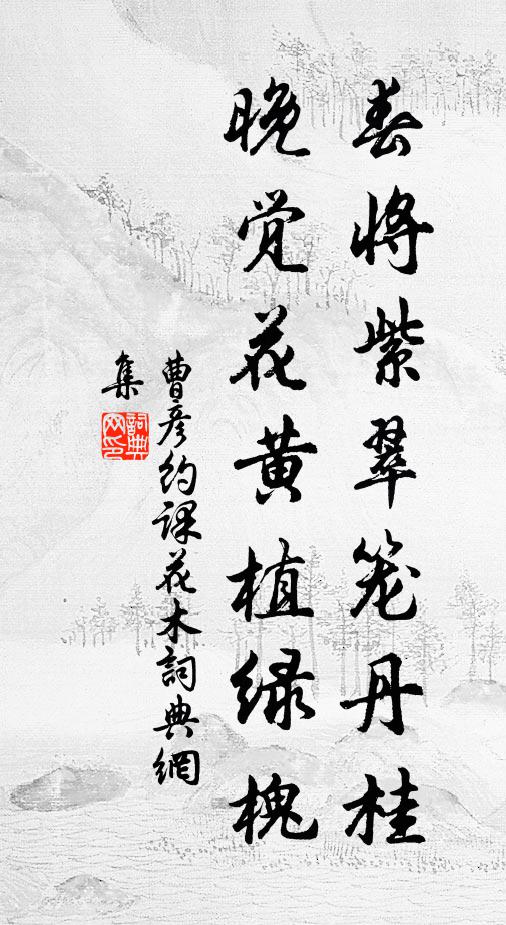 春将紫翠笼丹桂
晚觉花黄植绿槐
曹彦约课花木詞典網
集
詞典网印